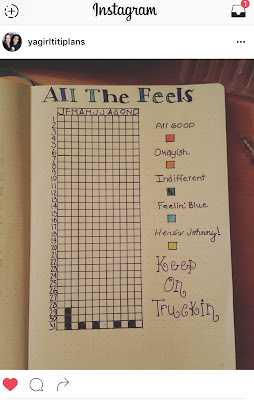 Instagram
1
yagirltitiplans
All The Feels
JFMAMJJASOND
1
2
3
4
5
6
7
8
9
10
11
12
13
14
15
16
17
18
19
20
21
22
23
24
25
26
27
28
29
30
31
All Good
Okayish
Indifferent
Feelin' Blue
Here's Johnny!
Keep
On
Truckin